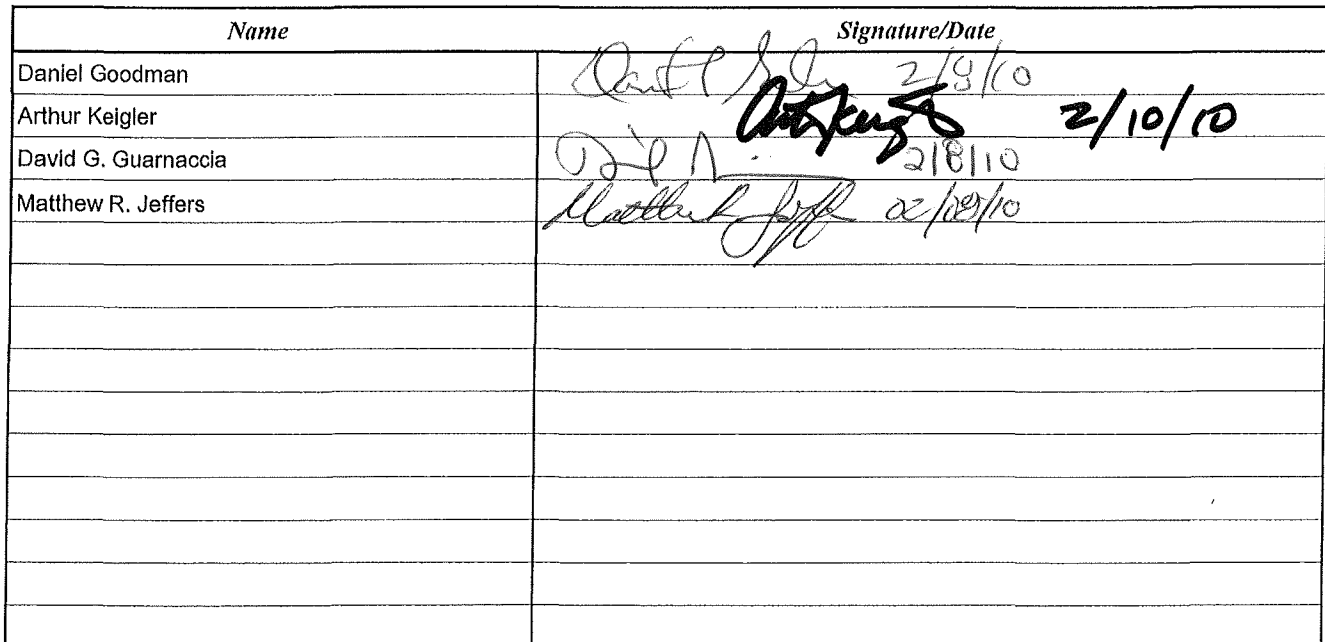 Name Signature/Date
Daniel Goodman 2/9/10
Arthur Keigler 2/10/10
David G. Guarnaccia 2/8/10
Matthew R. Jeffers Matthew R. Jeff